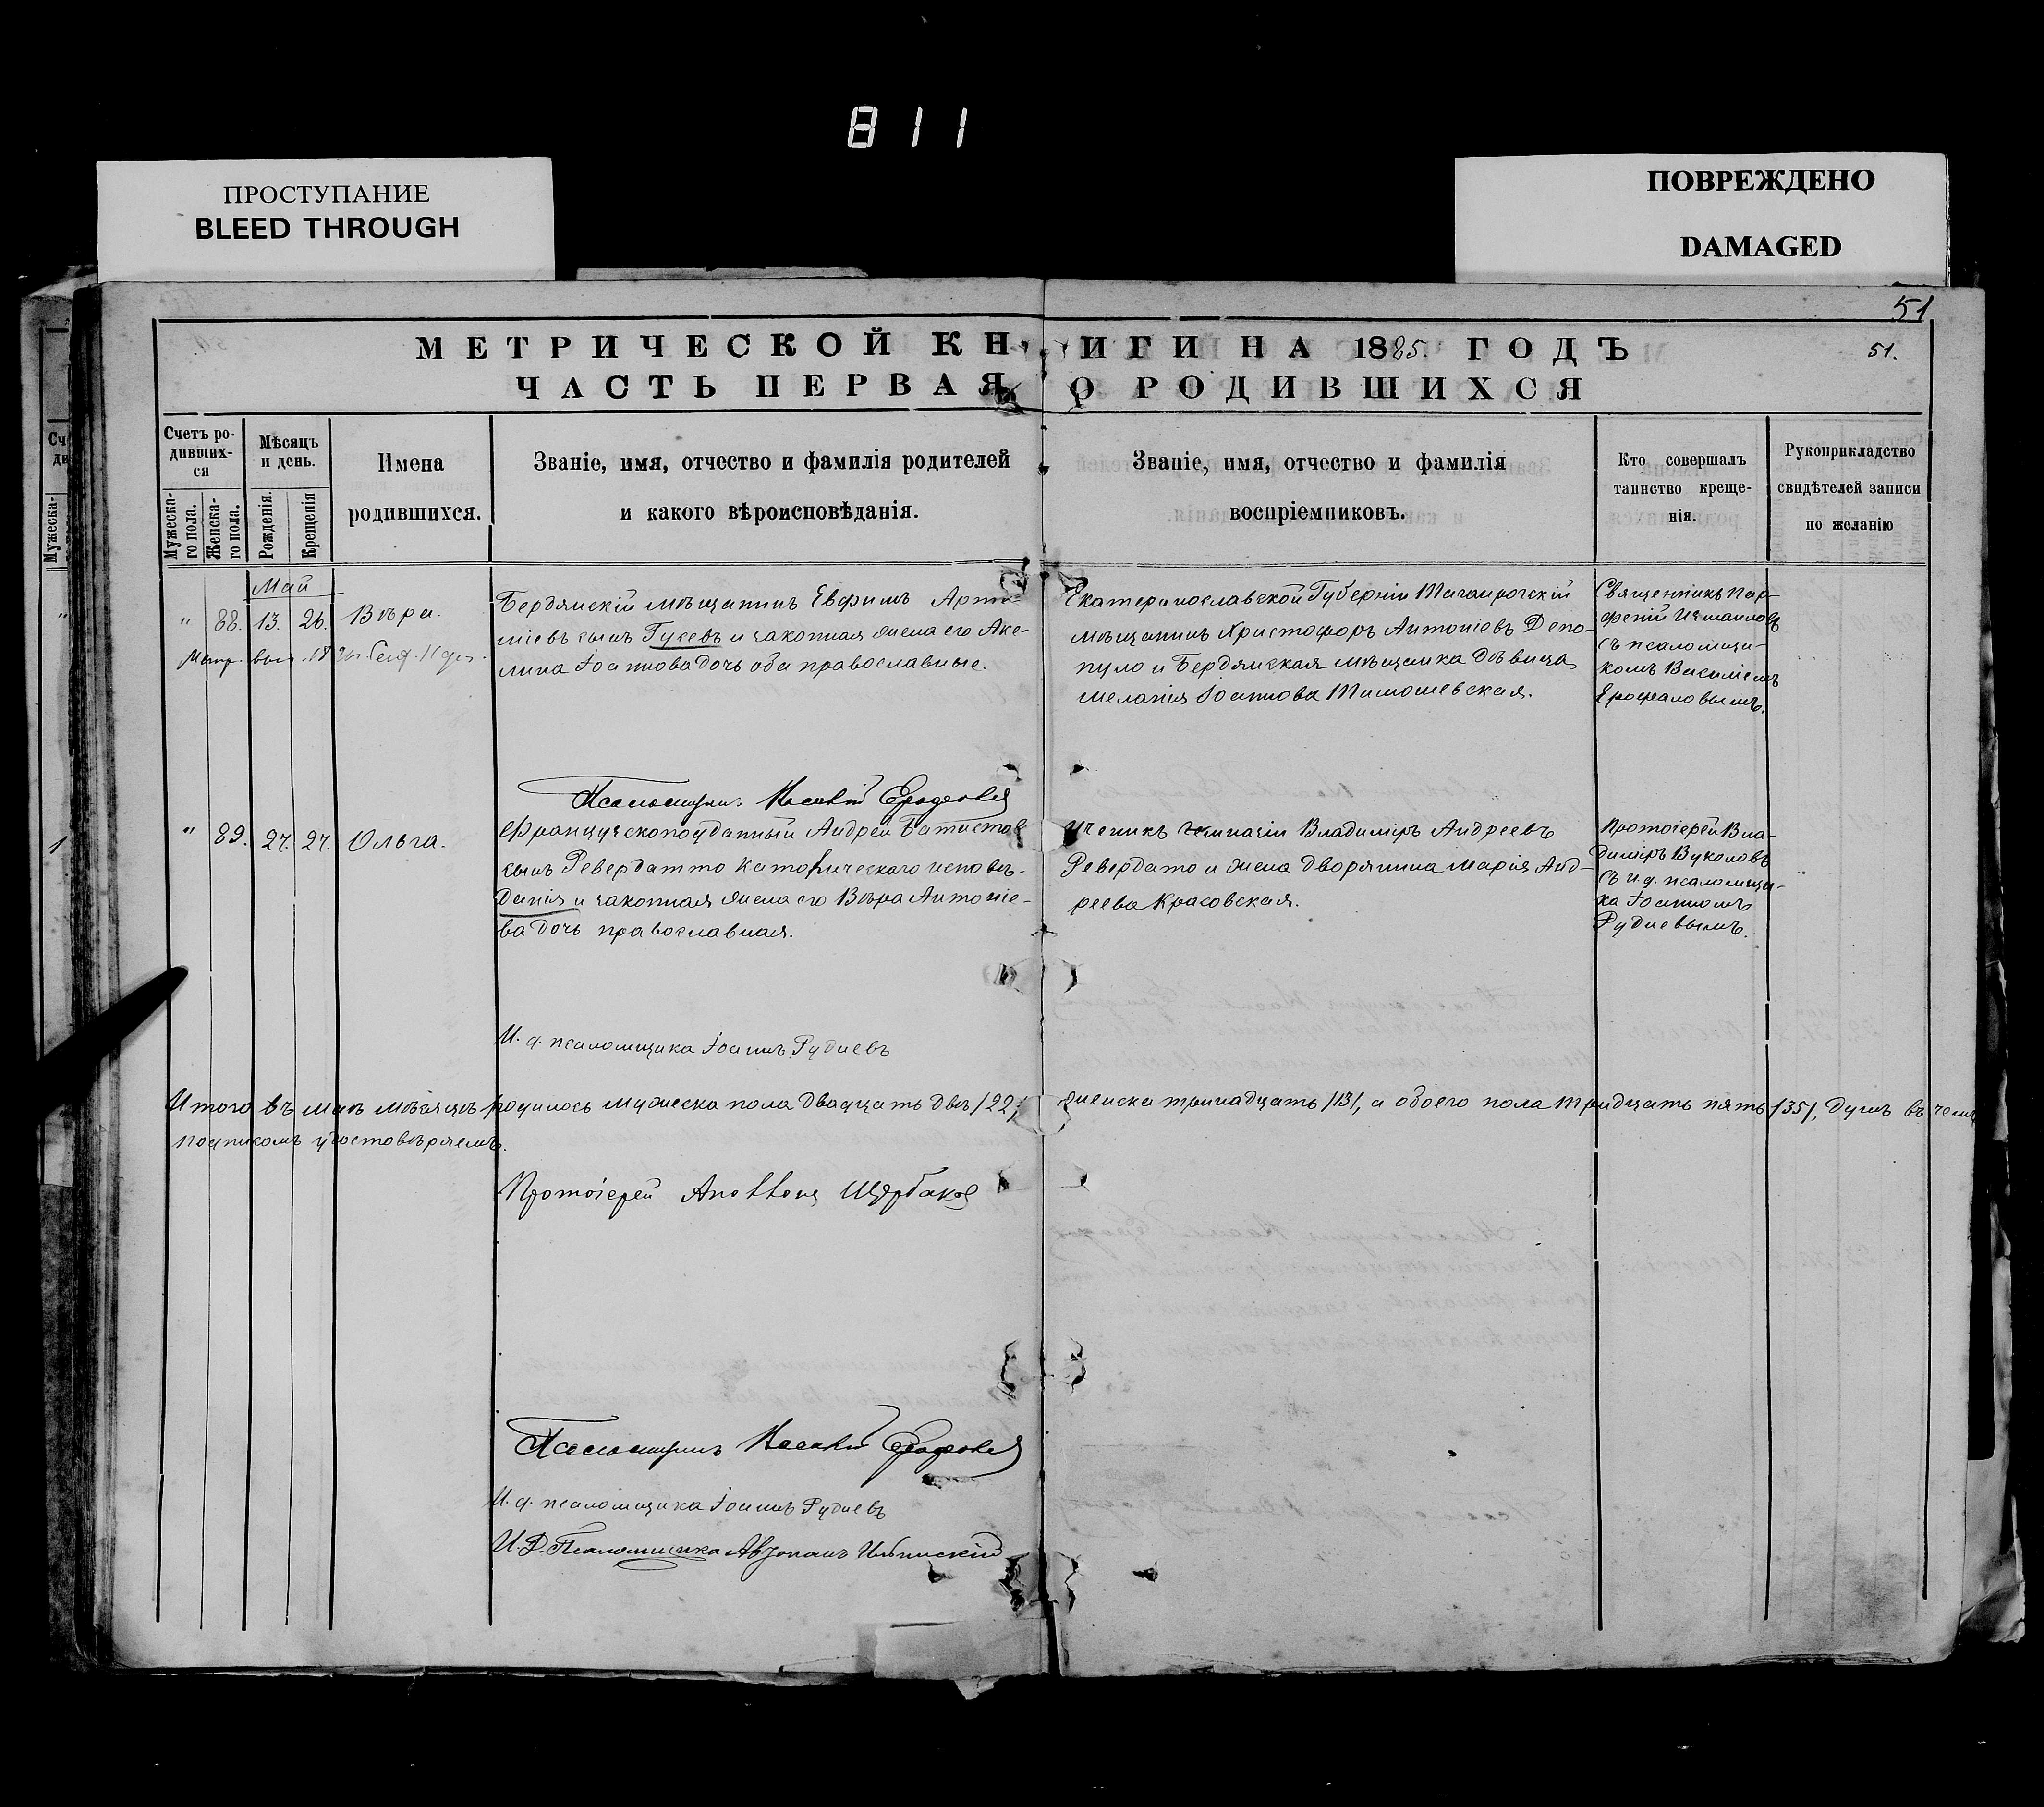 811
ПРОСТУПАНИЕ
BLEED THROUGH
ПОВРЕЖДЕНО
DAMAGED
51
МЕТРИЧЕСКОЙ КНИГИ НА 1885. ГОДЪ
51.
ЧАСТЬ ПЕРВАЯ О РОДИВШИХСЯ
Счетъ ро-
дивших-
ся
Мужеска-
го пола.
Женска-
го пола.
Мѣсяцъ
и день.
Рожденія.
Крещенія
Имена
родившихся.
Званіе, имя, отчество и фамилія родителей
и какого вѣроисповѣданія.
Званіе, имя, отчество и фамилія
воспріемниковъ.
Кто совершалъ
таинство креще-
нія.
Рукоприкладство
свидѣтелей записи
по желанію
Май
" 88. 13. 26. Вѣра.
Бердянскій мѣщанинъ Евфимъ Арте-
міевъ сынъ Гусевъ и законная жена его Аки-
лина Іоаннова дочь оба православные.
Екатеринославской Губерніи Таганрогскій
мѣщанинъ Христофоръ Антоніевъ Депо-
пуло и Бердянская мѣщанка дѣвица
Меланія Іоаннова Тимошевская.
Священникъ Пар-
феній Исмаиловъ
съ псаломщи-
комъ Василіемъ
Ерофаловымъ.
Псаломщикъ
" 89. 27. 27. Ольга.
Французскоподданный Андрей Батистовъ
сынъ Ревердатто католическаго исповѣ-
данія и законная жена его Вѣра Антоніе-
ва дочь православная.
Ученикъ гимназіи Владиміръ Андреевъ
Ревердато и жена дворянина Марія Анд-
реева Красовская.
Протоіерей Вла-
диміръ Вуколовъ
съ и. д. псаломщи-
ка Іоанномъ
Рудневымъ.
И. д. псаломщика Іоаннъ Рудневъ
Итого въ маѣ мѣсяцѣ родилось мужеска пола двадцать два /22/, женска тринадцать /13/, а обоего пола тридцать пять /35/, душъ въ чемъ
подписомъ удостовѣряемъ.
Протоіерей Щербаковъ
Псаломщикъ
И. д. псаломщика Іоаннъ Рудневъ
И. Д. Псаломщика